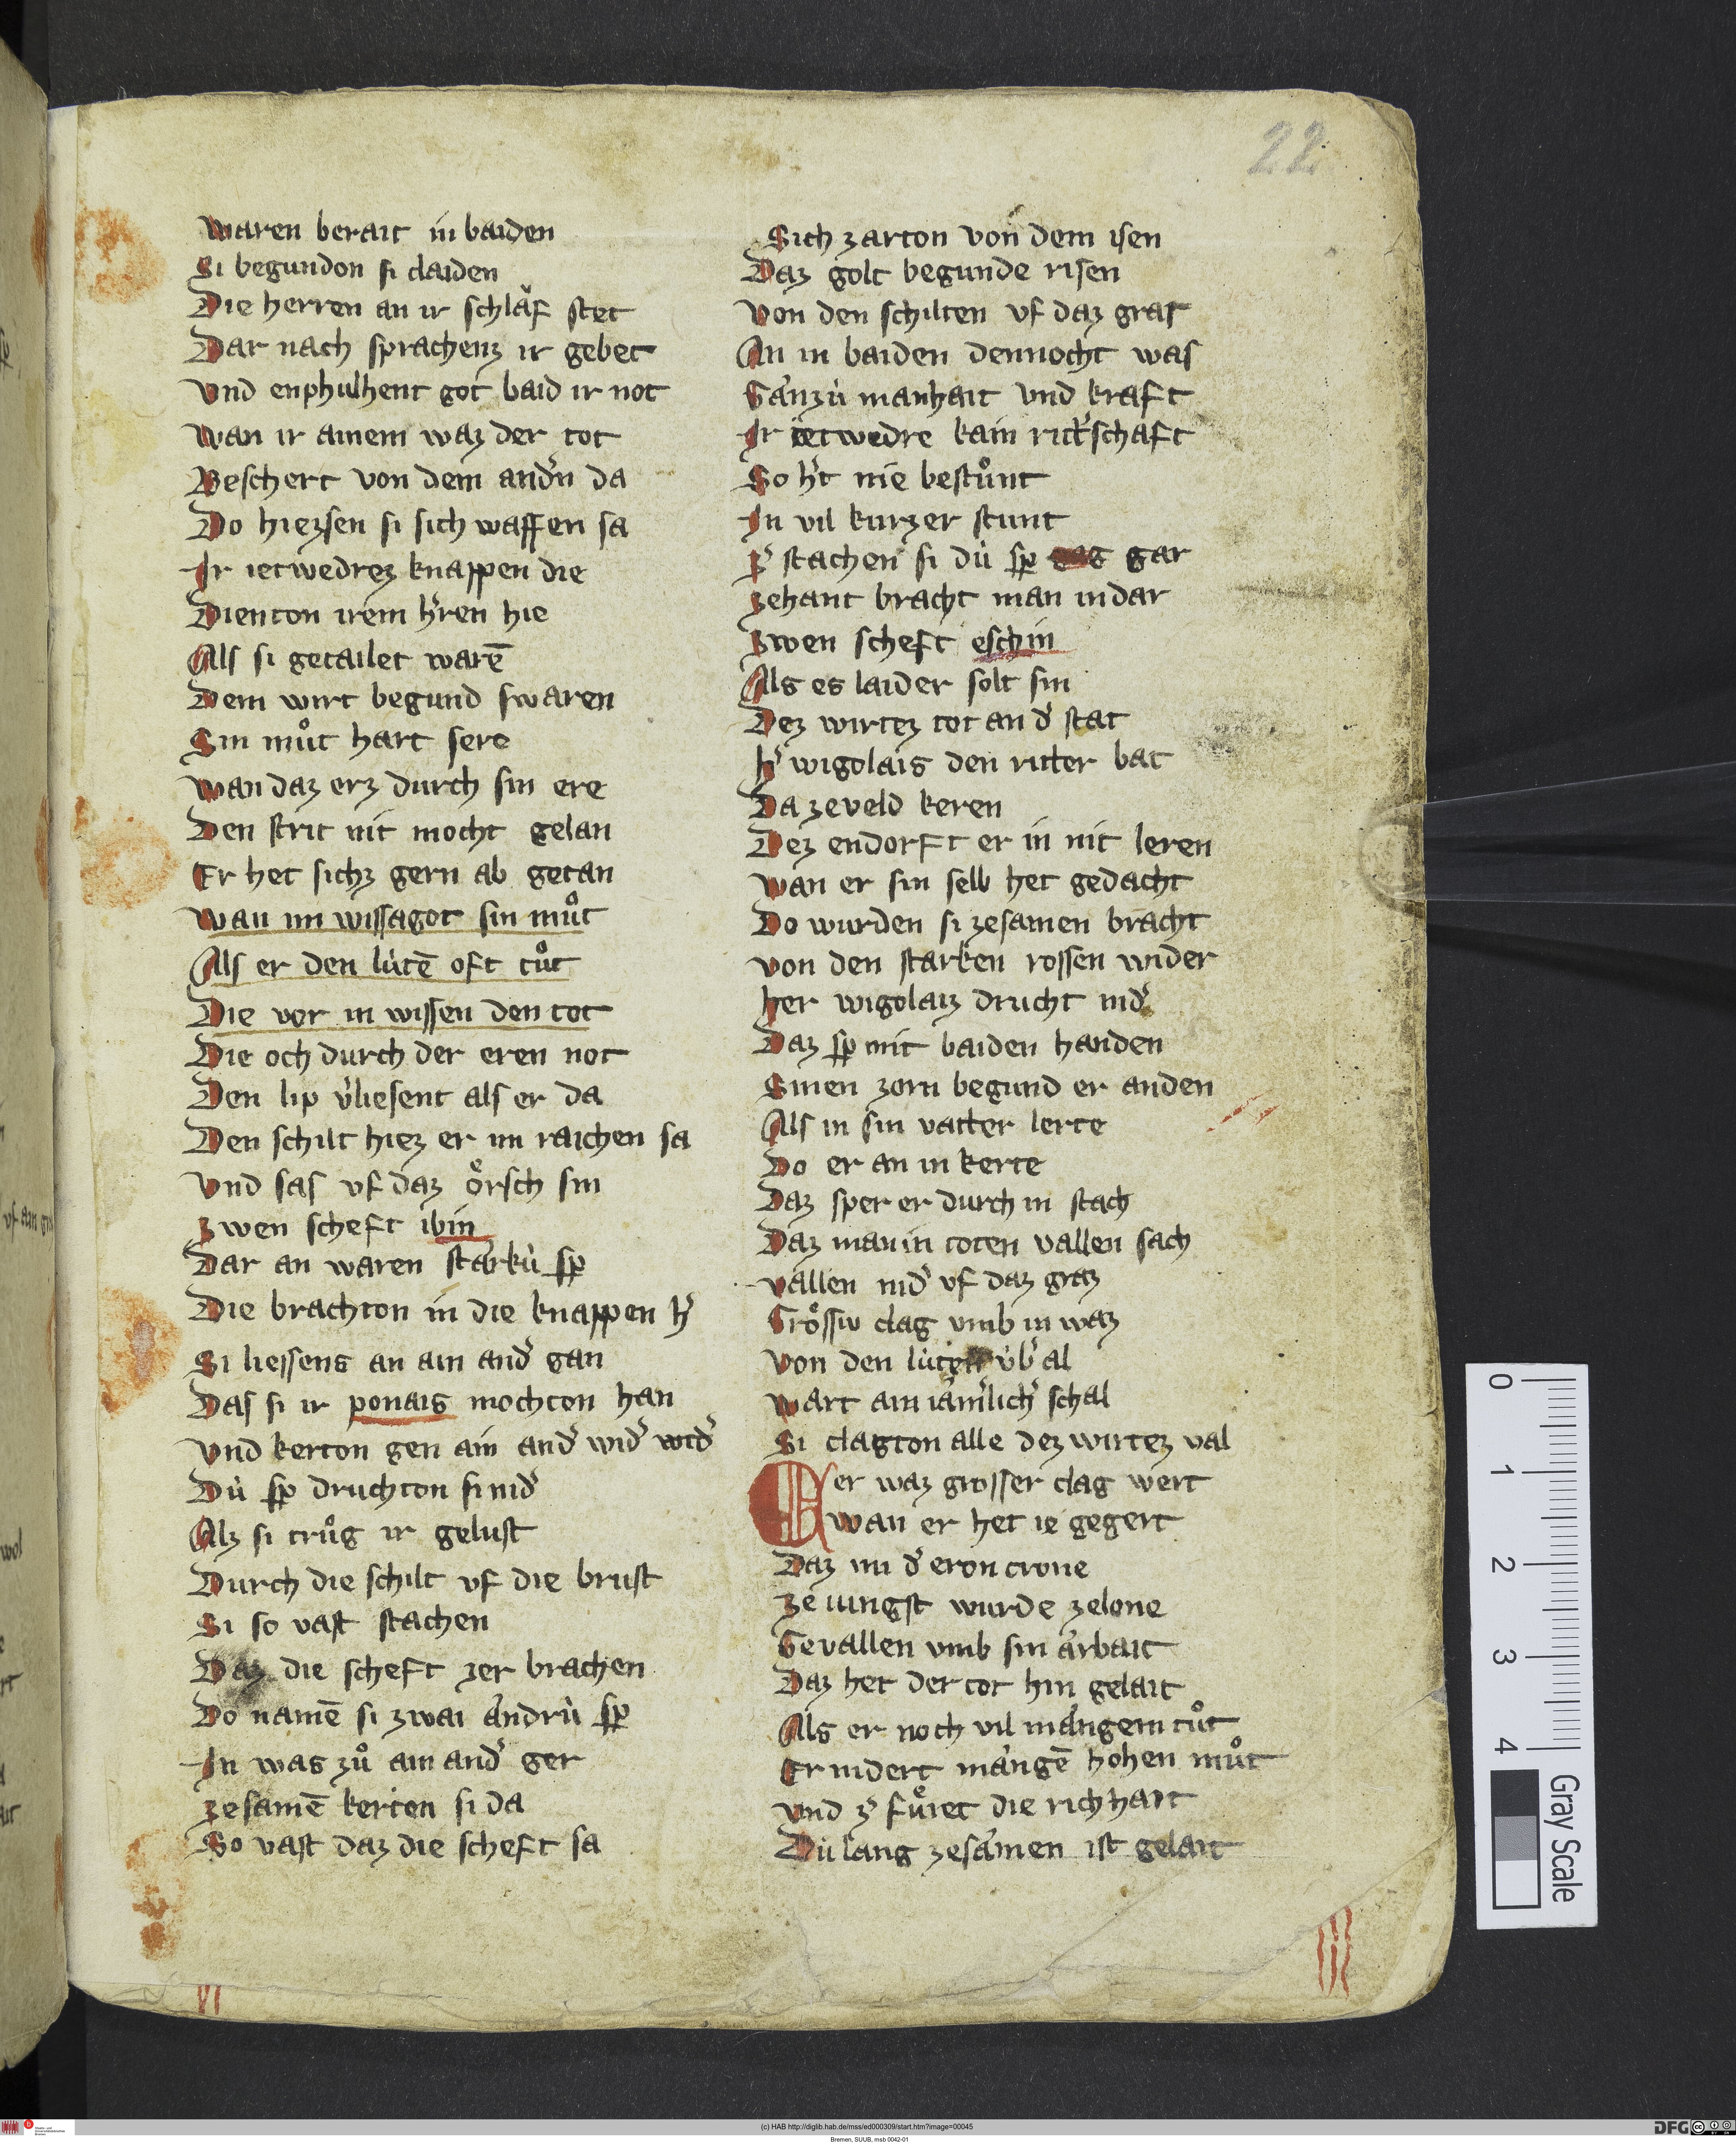 22
Waren berait in baiden
Si begundon si claiden
Die herren an ir schlaͮf stet
Dar nach sprachenz ir gebet
Vnd enphulhent got baid ir not
Wan ir ainem waz der tot
Beschert von dem and̾n da
Do hiezsen si sich waffen sa
Ir ietwedrez knappen die
Dienton irem h̾ren hie
Als si getailet warē
Dem wirt begund swaren
Sin muͦt hart sere
Wan daz erz durch sin ere
Den strit nit mocht gelan
Er het sichz gern ab getan
Wan im wissagot sin muͦt
Als er den lútē oft tuͦt
Die vor in wissen den tot
Die och durch der eren not
Den lip v̾liesent als er da
Den schilt hiez er im raichen sa
Vnd sas vf daz oͤrsch sin
Zwen scheft ibin
Dar an waren starkú sp̲
Die brachton in die knappen h̾
Si liessens an ain and̾ gan
Das si ir ponais mochton han
Vnd kerton gen ain and̾ wid̾ wid̾
Dú sp̲ druchton si nid̾
Alz si truͦg ir gelust
Durch die schilt vf die brust
Si so vast stachen
Daz die scheft zer brachen
Do namē si zwai andrú sp̲
In was zuͦ ain and̾ ger
Zesamē kerton si da
So vast daz die scheft sa
Sich zarton von dem isen
Daz golt begunde risen
Von den schilten vf daz gras
An in baiden dennocht was
Ganzú manhait vnd kraft
Ir ietwedre kain ritt̾schaft
So h̾t nie bestuͦnt
In vil kurzer stunt
Z̾ stachen si dú sp̲ gar
Zehant bracht man in dar
Zwen scheft eschin
Als es laider solt sin
Dez wirtez tot an d̾ stat
H̾ wigolais den ritter bat
Da zeveld keren
Dez endorft er in nit leren
Wan er sin selb het gedacht
Do wurden si zesamen bracht
Von den starken rossen wider
Her wigolaiz drucht nid̾
Daz sp̲ mit baiden handen
Sinen zorn begund er anden
Als in sin vatter lerte
Do er an in kerte
Daz sper er durch in stach
Daz man in toten vallen sach
Vallen nid̾ vf daz graz
Groͤssiv clag vmb in waz
Von den lúten v́b̾ al
Wart ain iam̾lich̾ schal
Si clagton alle dez wirtez val
Er waz grosser clag wert
Wan er het ie gegert
Daz im d̾ eron crone
Ze iungst wurde zelone
Gevallen vmb sin arbait
Daz het der tot hin gelait
Als er noch vil mangem tuͦt
Er nidert mangē hohen muͦt
Vnd z̾ fuͤret die richhait
Dú lang zesamen ist gelait
VI
0
1
2
3
4
Gray Scale
(c) HAB http://diglib.hab.de/mss/ed000309/start.htm?image=00045
Bremen, SUUB, msb 0042-01
DFG